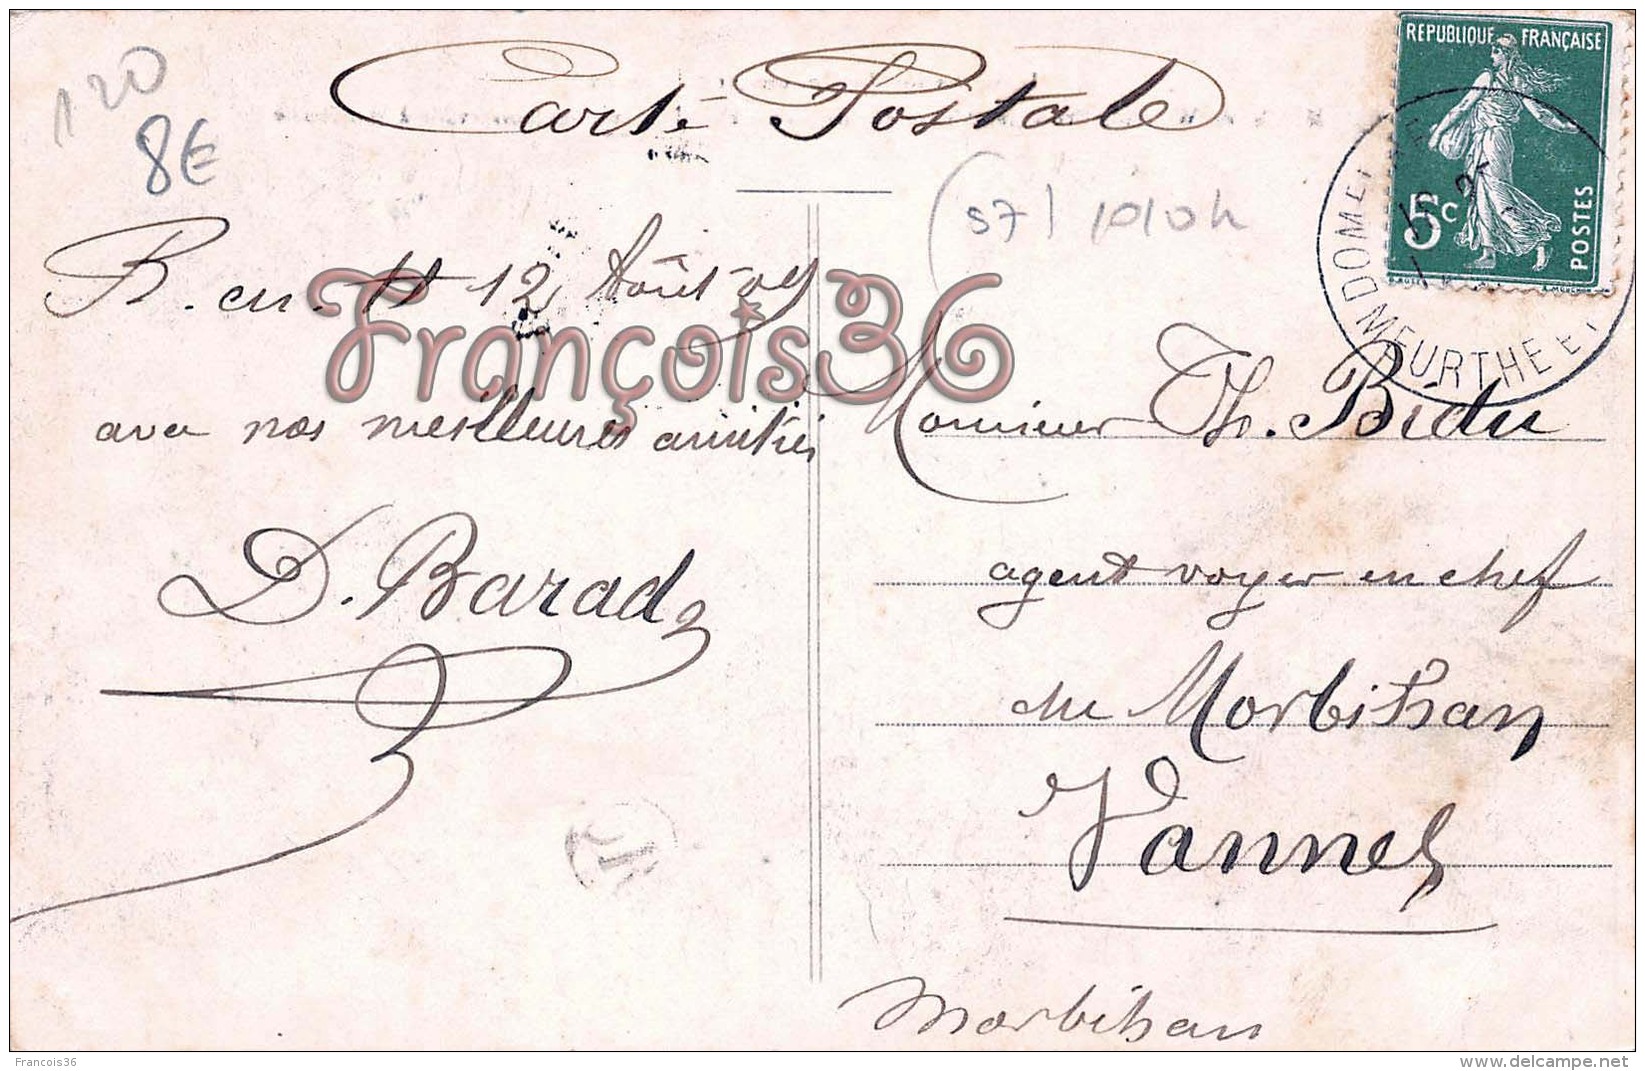 120
8€
Carte Postale
57 | 1010h
REPUBLIQUE FRANÇAISE
5c
POSTES
DOMEVRE EN
MEURTHE ET
B. en. H 12 Août 09
François36
avec nos meilleures amitiés
D. Barad
Monsieur Th. Bidu
agent voyer en chef
du Morbihan
Vannes
Morbihan
Francois36
www.delcampe.net